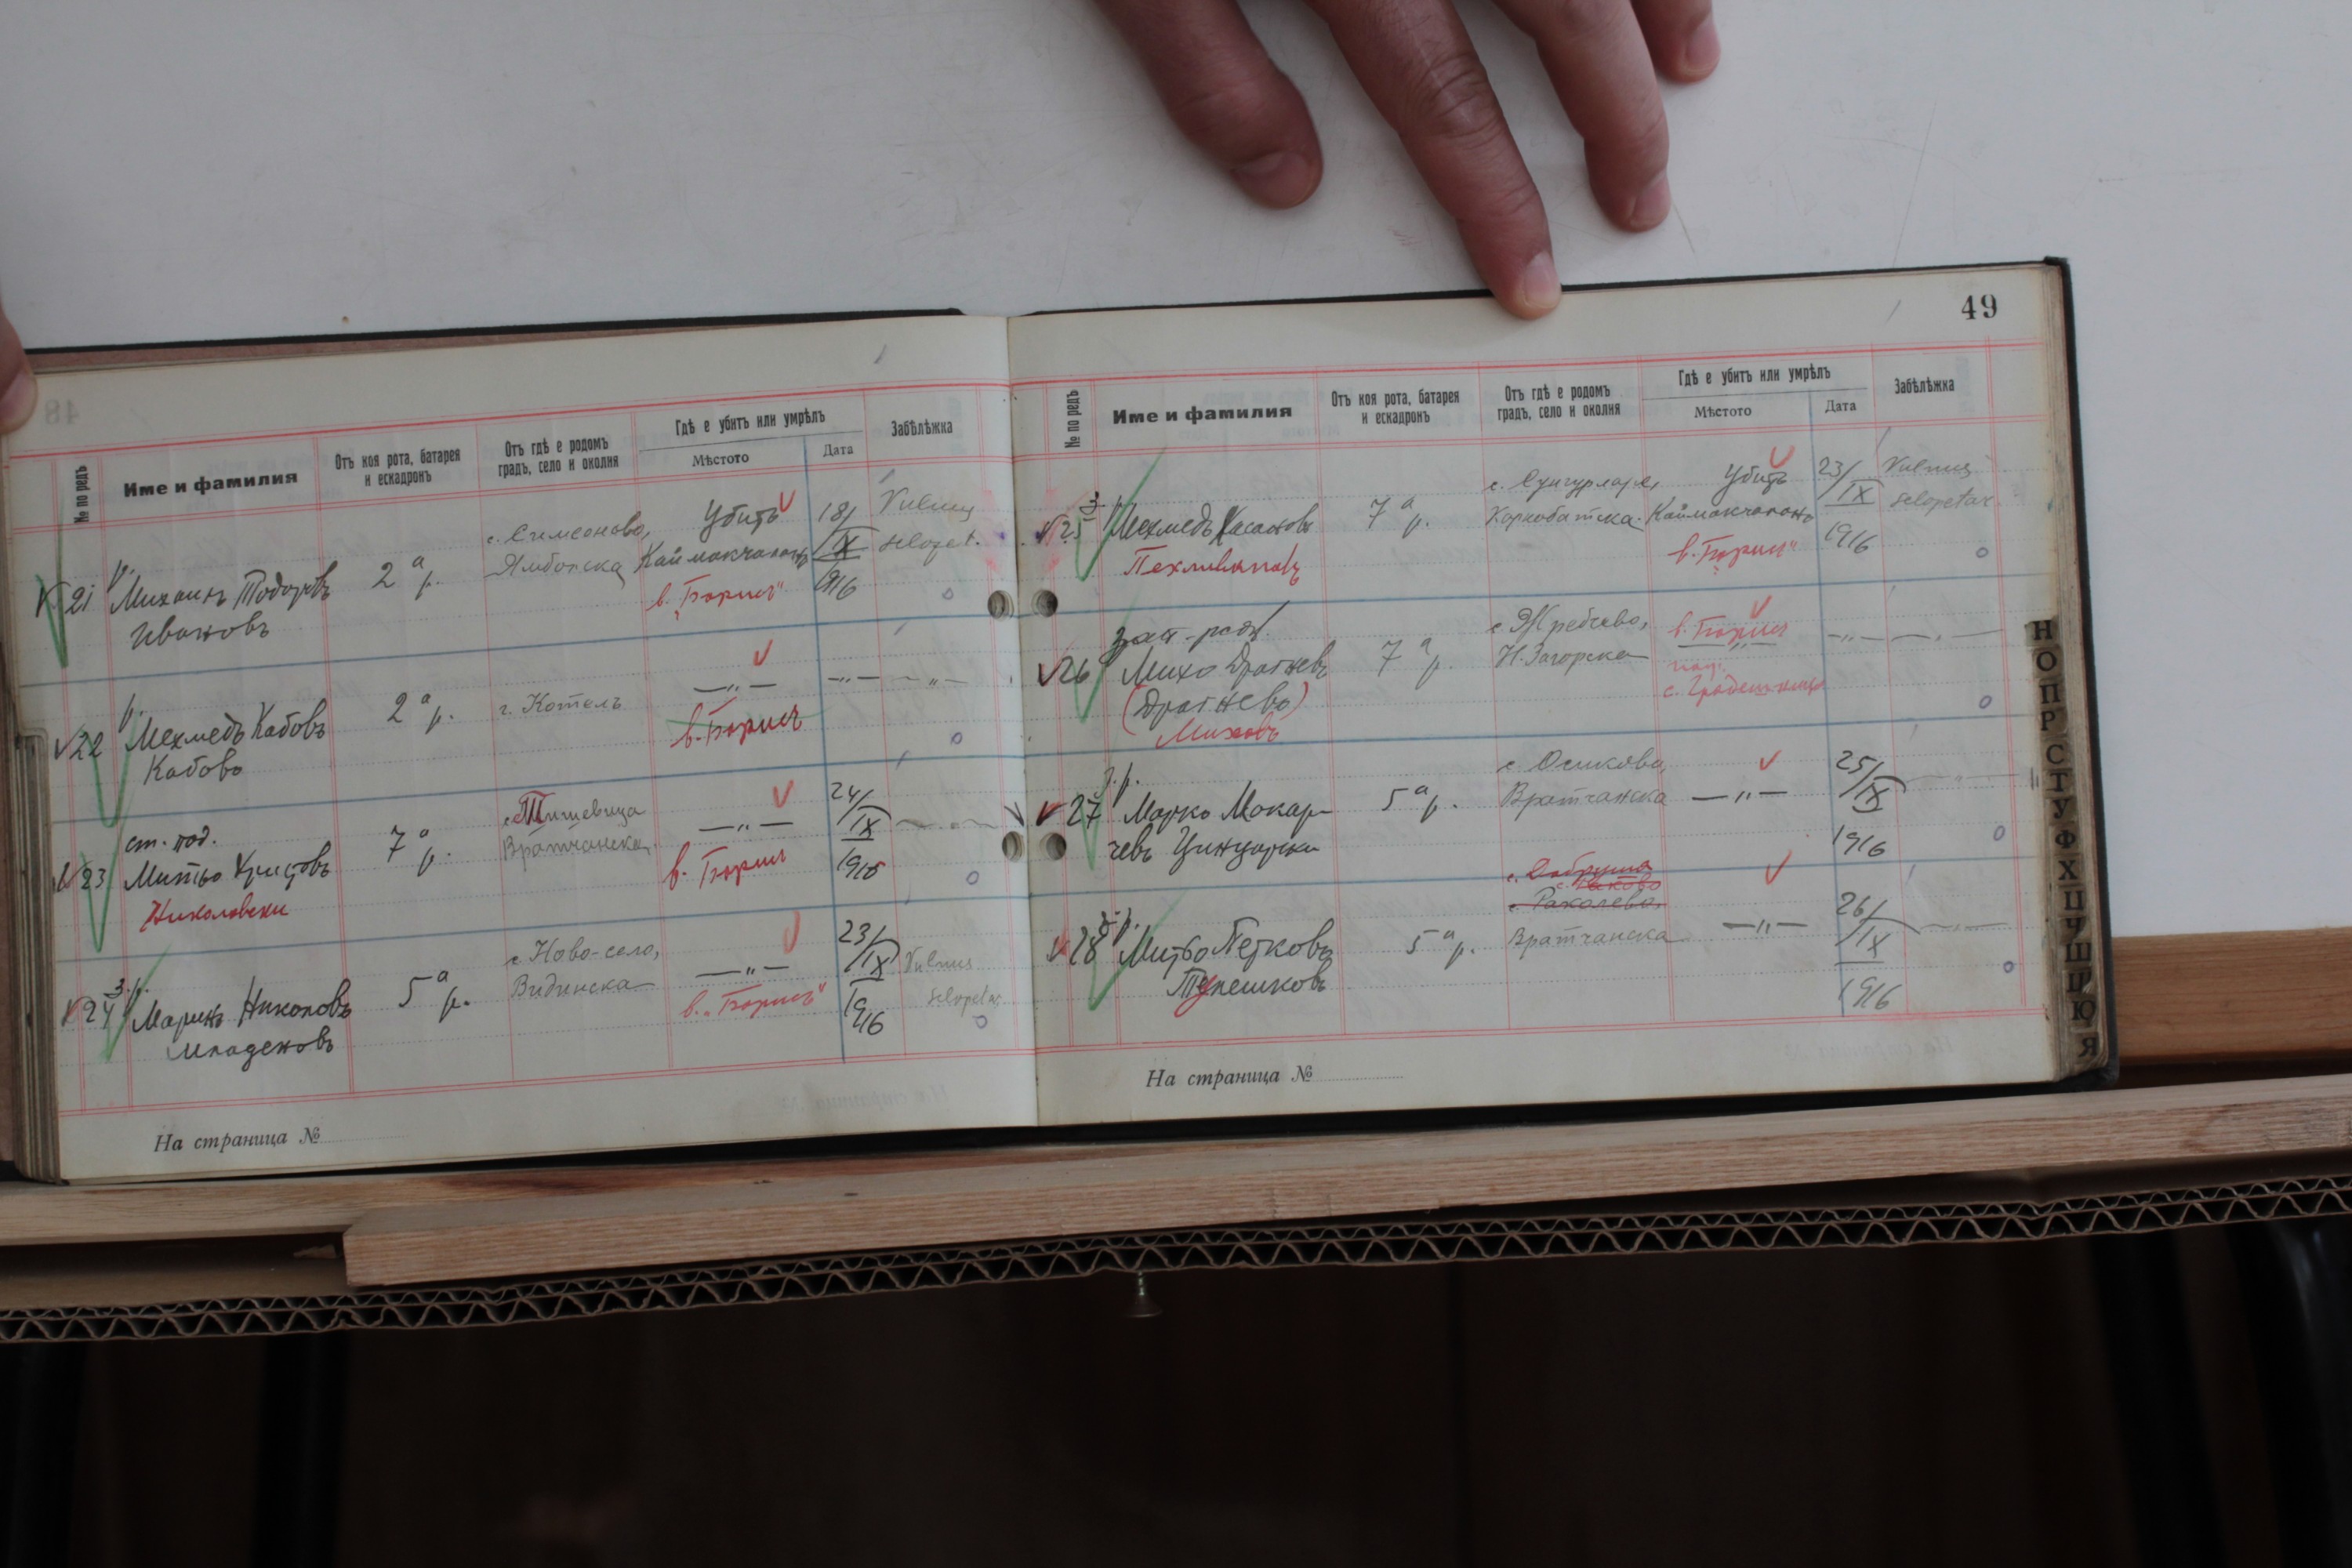 № по редъ
Име и фамилия
Отъ коя рота, батарея
и ескадронъ
Отъ гдѣ е родомъ
градъ, село и околия
Гдѣ е убитъ или умрѣлъ
Мѣстото
Дата
Забѣлѣжка
21
р.
Михаилъ Тодоровъ
Ивановъ
2 а р.
с. Симеоново,
Ямболска
Убитъ
Каймакчаланъ
в. "Борисъ"
18/
IX
916
Vulnus
selopet.
22
р.
Мехмедъ Кабовъ
Кабовъ
2 а р.
г. Котелъ
— " —
в. Борисъ
— " —
— " —
23
ст. под.
Митьо Христовъ
Николовски
7 а р.
с. Тишевица
Вратчанска
— " —
в. Борисъ
24/
IX
1916
— " —
24
з. р.
Маринъ Николовъ
Младеновъ
5 а р.
с. Ново-село,
Видинска
— " —
в. "Борисъ"
23/
IX
1916
Vulnus
selopetar
На страница №
49
№ по редъ
Име и фамилия
Отъ коя рота, батарея
и ескадронъ
Отъ гдѣ е родомъ
градъ, село и околия
Гдѣ е убитъ или умрѣлъ
Мѣстото
Дата
Забѣлѣжка
25
з. р.
Мехмедъ Хасановъ
Пехливановъ
7 а р.
с. Сунгурларе,
Карнобатска
Убитъ
Каймакчаланъ
в. "Борисъ"
23/
IX
1916
Vulnus
selopetar.
26
Михо Драгневъ
(Драгневъ)
Миховъ
7 а р.
с. Жребчево,
Н. Загорска
в. Борисъ
— " —
с. Градешница
— " —
— " —
27
з. р.
Марко Макар-
чевъ Цинцарски
5 а р.
с. Осиково,
Вратчанска
— " —
25/
IX
1916
— " —
28
Митьо Петковъ
Тупешковъ
5 а р.
с. Добруша
с. Раколево,
Вратчанска
— " —
26/
IX
1916
— " —
На страница №
Н
О
П
Р
С
Т
У
Ф
Х
Ц
Ч
Ш
Щ
Ю
Я